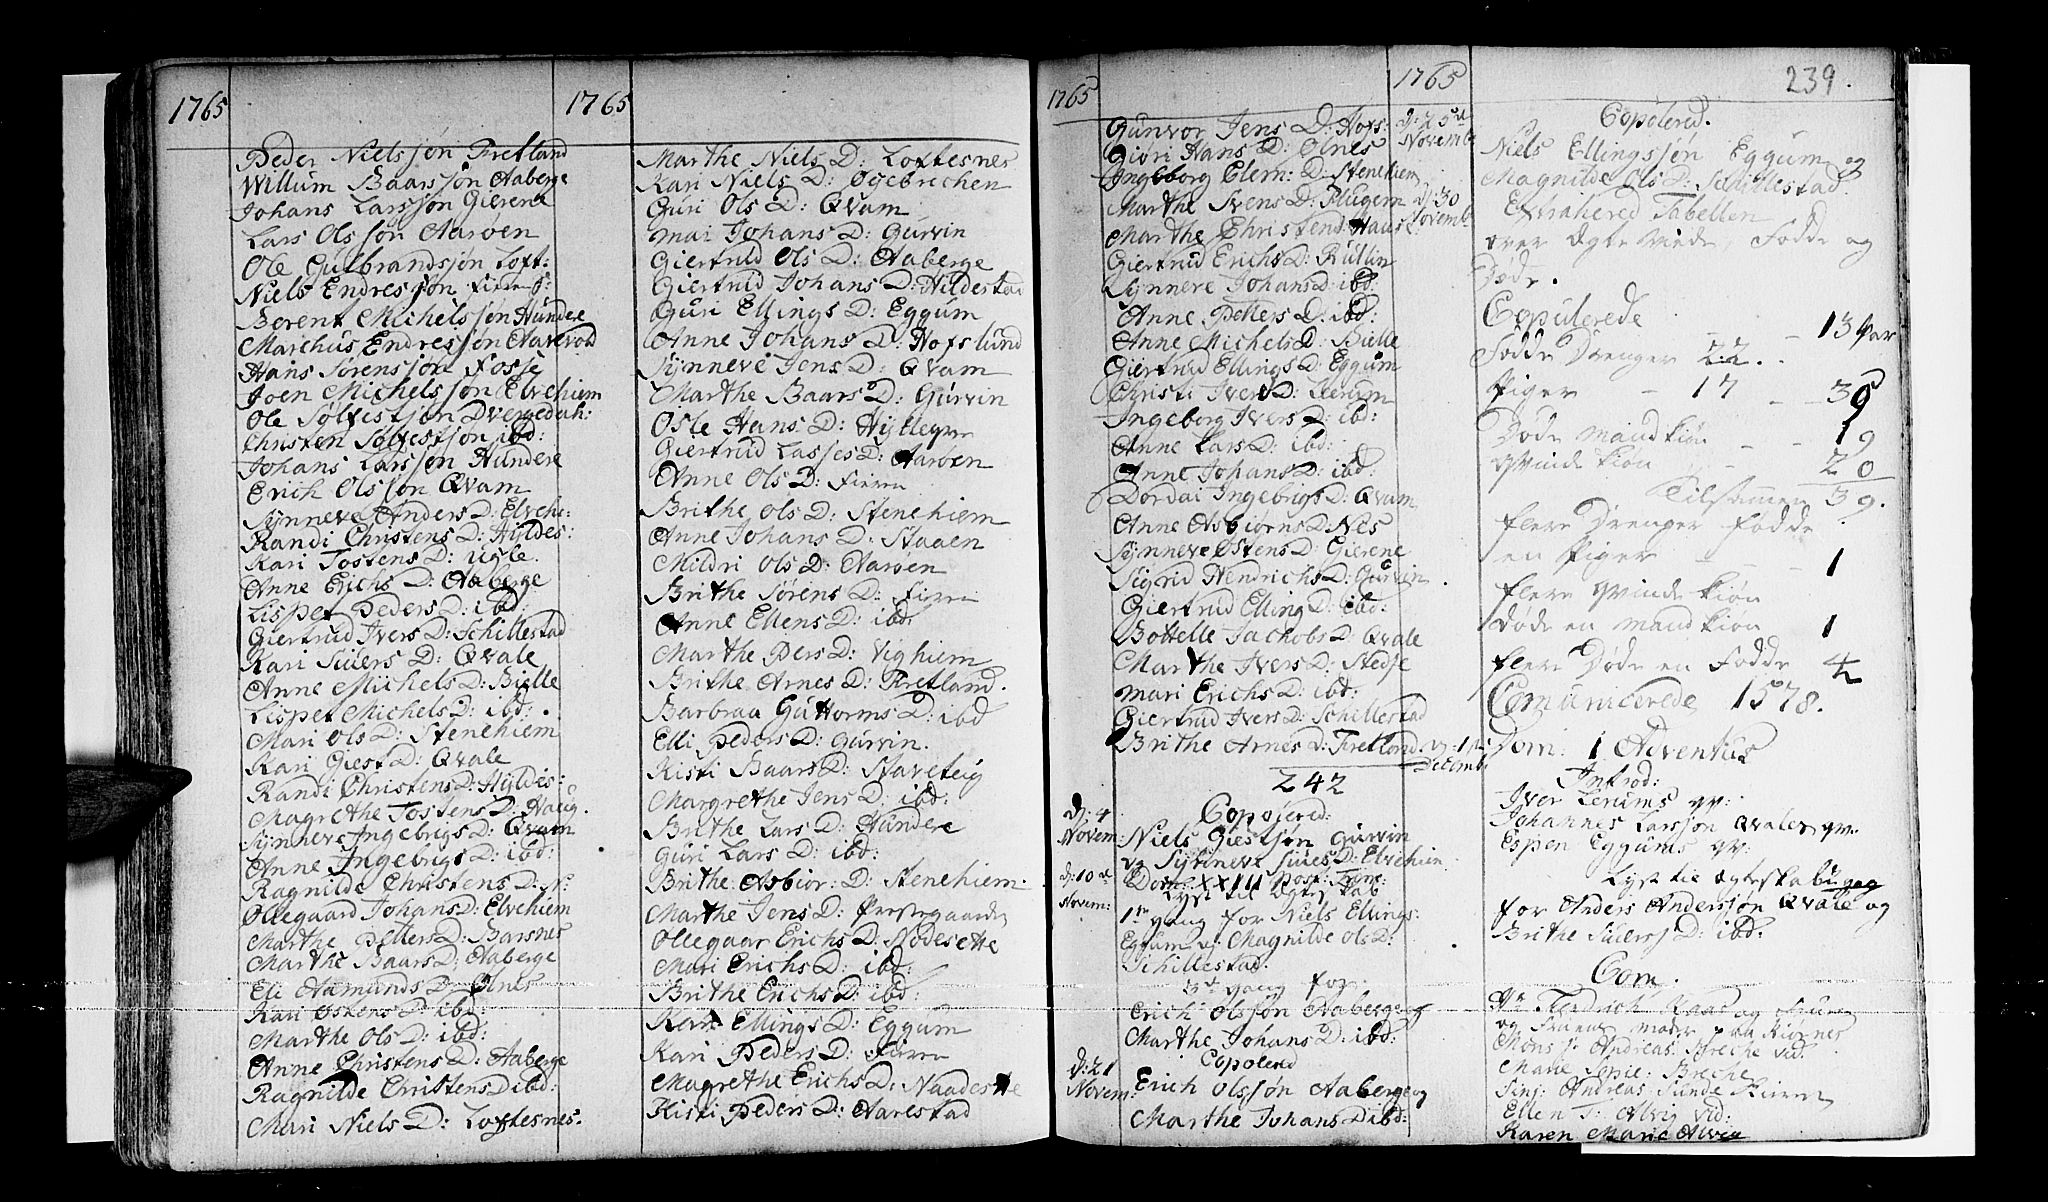 1765
Peder Nielssøn Fretland
Willum Baarssøn Aaberge
Johans Larssøn Gierene
Lars Olssøn Aarøen
Ole Gulbrandsøn Loft:
Niels Endressøn
Berent Michelssøn Hundere
Marchus Endressøn Aarevold
Hans Sørensøn Fosse
Joen Michelssøn Elvehiem
Ole Sølfestsøn Dvergedah:
Christen Sølfestsøn ibd:
Johans Larssøn Hundere
Erich Olssøn Qvam
Synneve Anders D: Elvehi:
Randi Christens D: Hyldes:
Kari Tostens D: Ugle.
Anne Erichs D: Aaberge
Lispet Peders D: ibd:
Giertrud Ivers D: Schillestad
Kari Siuers D: Qvale
Anne Michels D: Bielle
Lispet Michels D: ibd:
Mari Ols D: Stenehiem
Kari Giest D: Qvale
Randi Christens D: Hyldes:
Magrethe Tostens D: Haug.
Synneve Ingebrigs D: Qvam
Anne Ingebrigs D: ibd:
Ragnilde Christens D: N:
Ollegaard Johans D: Elvehiem
Marthe Petters D: Barsnes
Marthe Baars D: Aaberge
Eli Aamunds D: Ølnes
Kari Østens D: ibd:
Marthe Ols D: ibd:
Anne Christens D: Aaberge
Ragnilde Christens D ibd:
Mari Niels D: Loftesnes.
1765
Marthe Niels D: Loftesnes
Kari Niels D: Øyebrechen
Guri Ols D: Qvam
Mai Johans D: Gurvin
Giertrud Ols D: Aaberge
Giertrud Johans D: Hildestad
Guri Ellings D: Eggum
Anne Johans D: Hofslund
Synneve Jens D: Qvam
Marthe Baars D: Gurvin
Osle Hans D:
Giertrud Lasses D: Aarøen
Anne Ols D: Firen
Brithe Ols D: Stenehiem
Anne Johans D: Staaen
Mildri Ols D: Aarøen
Brithe Sørens D:
Anne Ellens D: ibd:
Marthe Pers D: Vighiem
Brithe Arnes D: Fretland.
Barbraa Guttorms D: ibd
Elli Peders D: Gurvin.
Kisti Baars D: Staveteig
Margrethe Jens D: ibd:
Brithe Lars D: Hundere
Guri Lars D: ibd:
Brithe Asbiør: D: Stenehiem:
Marthe Jens D: Prestegaarden
Ollegaar Erichs D: Nødesethe
Mari Erichs D: ibd:
Brithe Erichs D: ibd:
Kari Ellings D: Eggum
Kari Peders D:
Magrethe Erichs D:
Kisti Peders D: Aarestad
1765
Gunvor Jens D: Hofs:
Giøri Hans D: Ølnes
Ingeborg Clem: D: Stenehiem
Marthe Svens D: Flugem
Marthe Christens D: Haug
Giertrud Erichs D: Rullin
Synneve Johans D: ibd:
Anne Petters D: ibd:
Anne Michels D: Bielle
Giertrud Ellings D: Eggum
Christi Ivers D: Lerum
Ingeborg Ivers D: ibd:
Anne Lars D: ibd:
Anne Johans D: ibd:
Dordai Ingebrigs D: Qvam
Anne Asbiørns D: Nes
Synneve Østens D: Gierene
Sigrid Hendrichs D: Gurvin
Giertrud Elling D: ibd:
Bottelle Jachobs D: Qvale
Marthe Ivers D: Stedje
Mari Erichs D: ibd:
Giertrud Ivers D: Schillestad
Brithe Arnes D: Fretland.
242
d: 4 Novem:
Copolered:
Niels Giestsøn Gurvin
og Synneve Siues D: Elvehiem
d: 10de Novem:
Dom: XXIII post: Trin:
Lyst til Egteskab
1te gang for Niels Ellings:
Eggum og Magnilde Ols D:
Schillestad.
3de gang for
Erich Olssøn Aaberge og
Marthe Johans D: ibd:
d: 21 Novem:
Copolered
Erich Olssøn Aaberge og
Marthe Johans D ibd:
1765
239.
d: 25de Novemb
Copolered.
Niels Ellingssøn Eggum og
Magnilde Ols D: Schillestad.
d: 30 Novemb:
Extrahered Tabellen
over Egteviede, Fødde og
Døde.
Copulerede - 13 Par
Fødde Drenger 22.
Piger - 17 - 39
Døde Mandkiøn - - 19
Qvindekiøn - 20
Tilsamen 39.
flere Drenger fødde
en Piger - - 1
flere Qvindekiøn
døde en Mandkiøn 1
flere Døde en Fødde 4
Comunicerede 1578.
d: 1te Decemb:
Dom: 1 Adventus
Introd:
Iver Lerums qv:
Johannes Larssøn Qvales qv:
Espen Eggums qv:
Lyst til Egteskab 1 gag
for Anders Anderssøn Qvale og
Brithe Siuers D: ibd.
Com.
Hr Hendrich Kaas og Frue
og Fruens Moder paa
Mons: Andreas Breche vid.
Marie Sopie Breche
Sinj: Andreas
Ellen T: Alvig vid:
Karen Marie